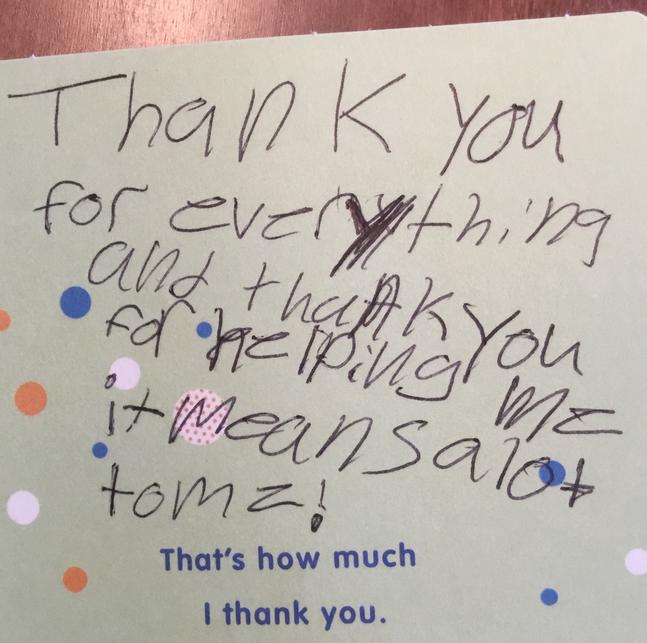 Thank you
for everything
and thank you
for helping me
it means alot
to me!
That's how much
I thank you.